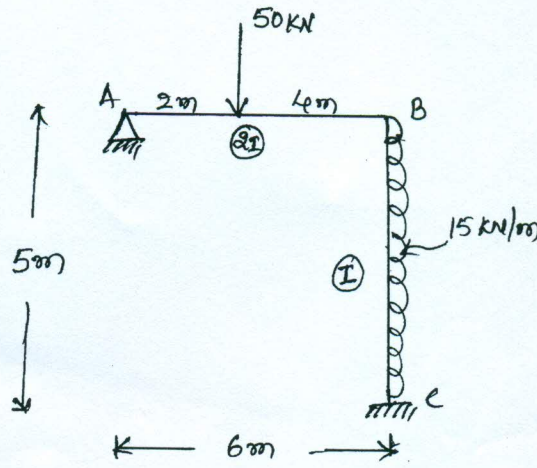 50KN
A 2m 4m B
2I
15 KN/m
5m
I
C
6m